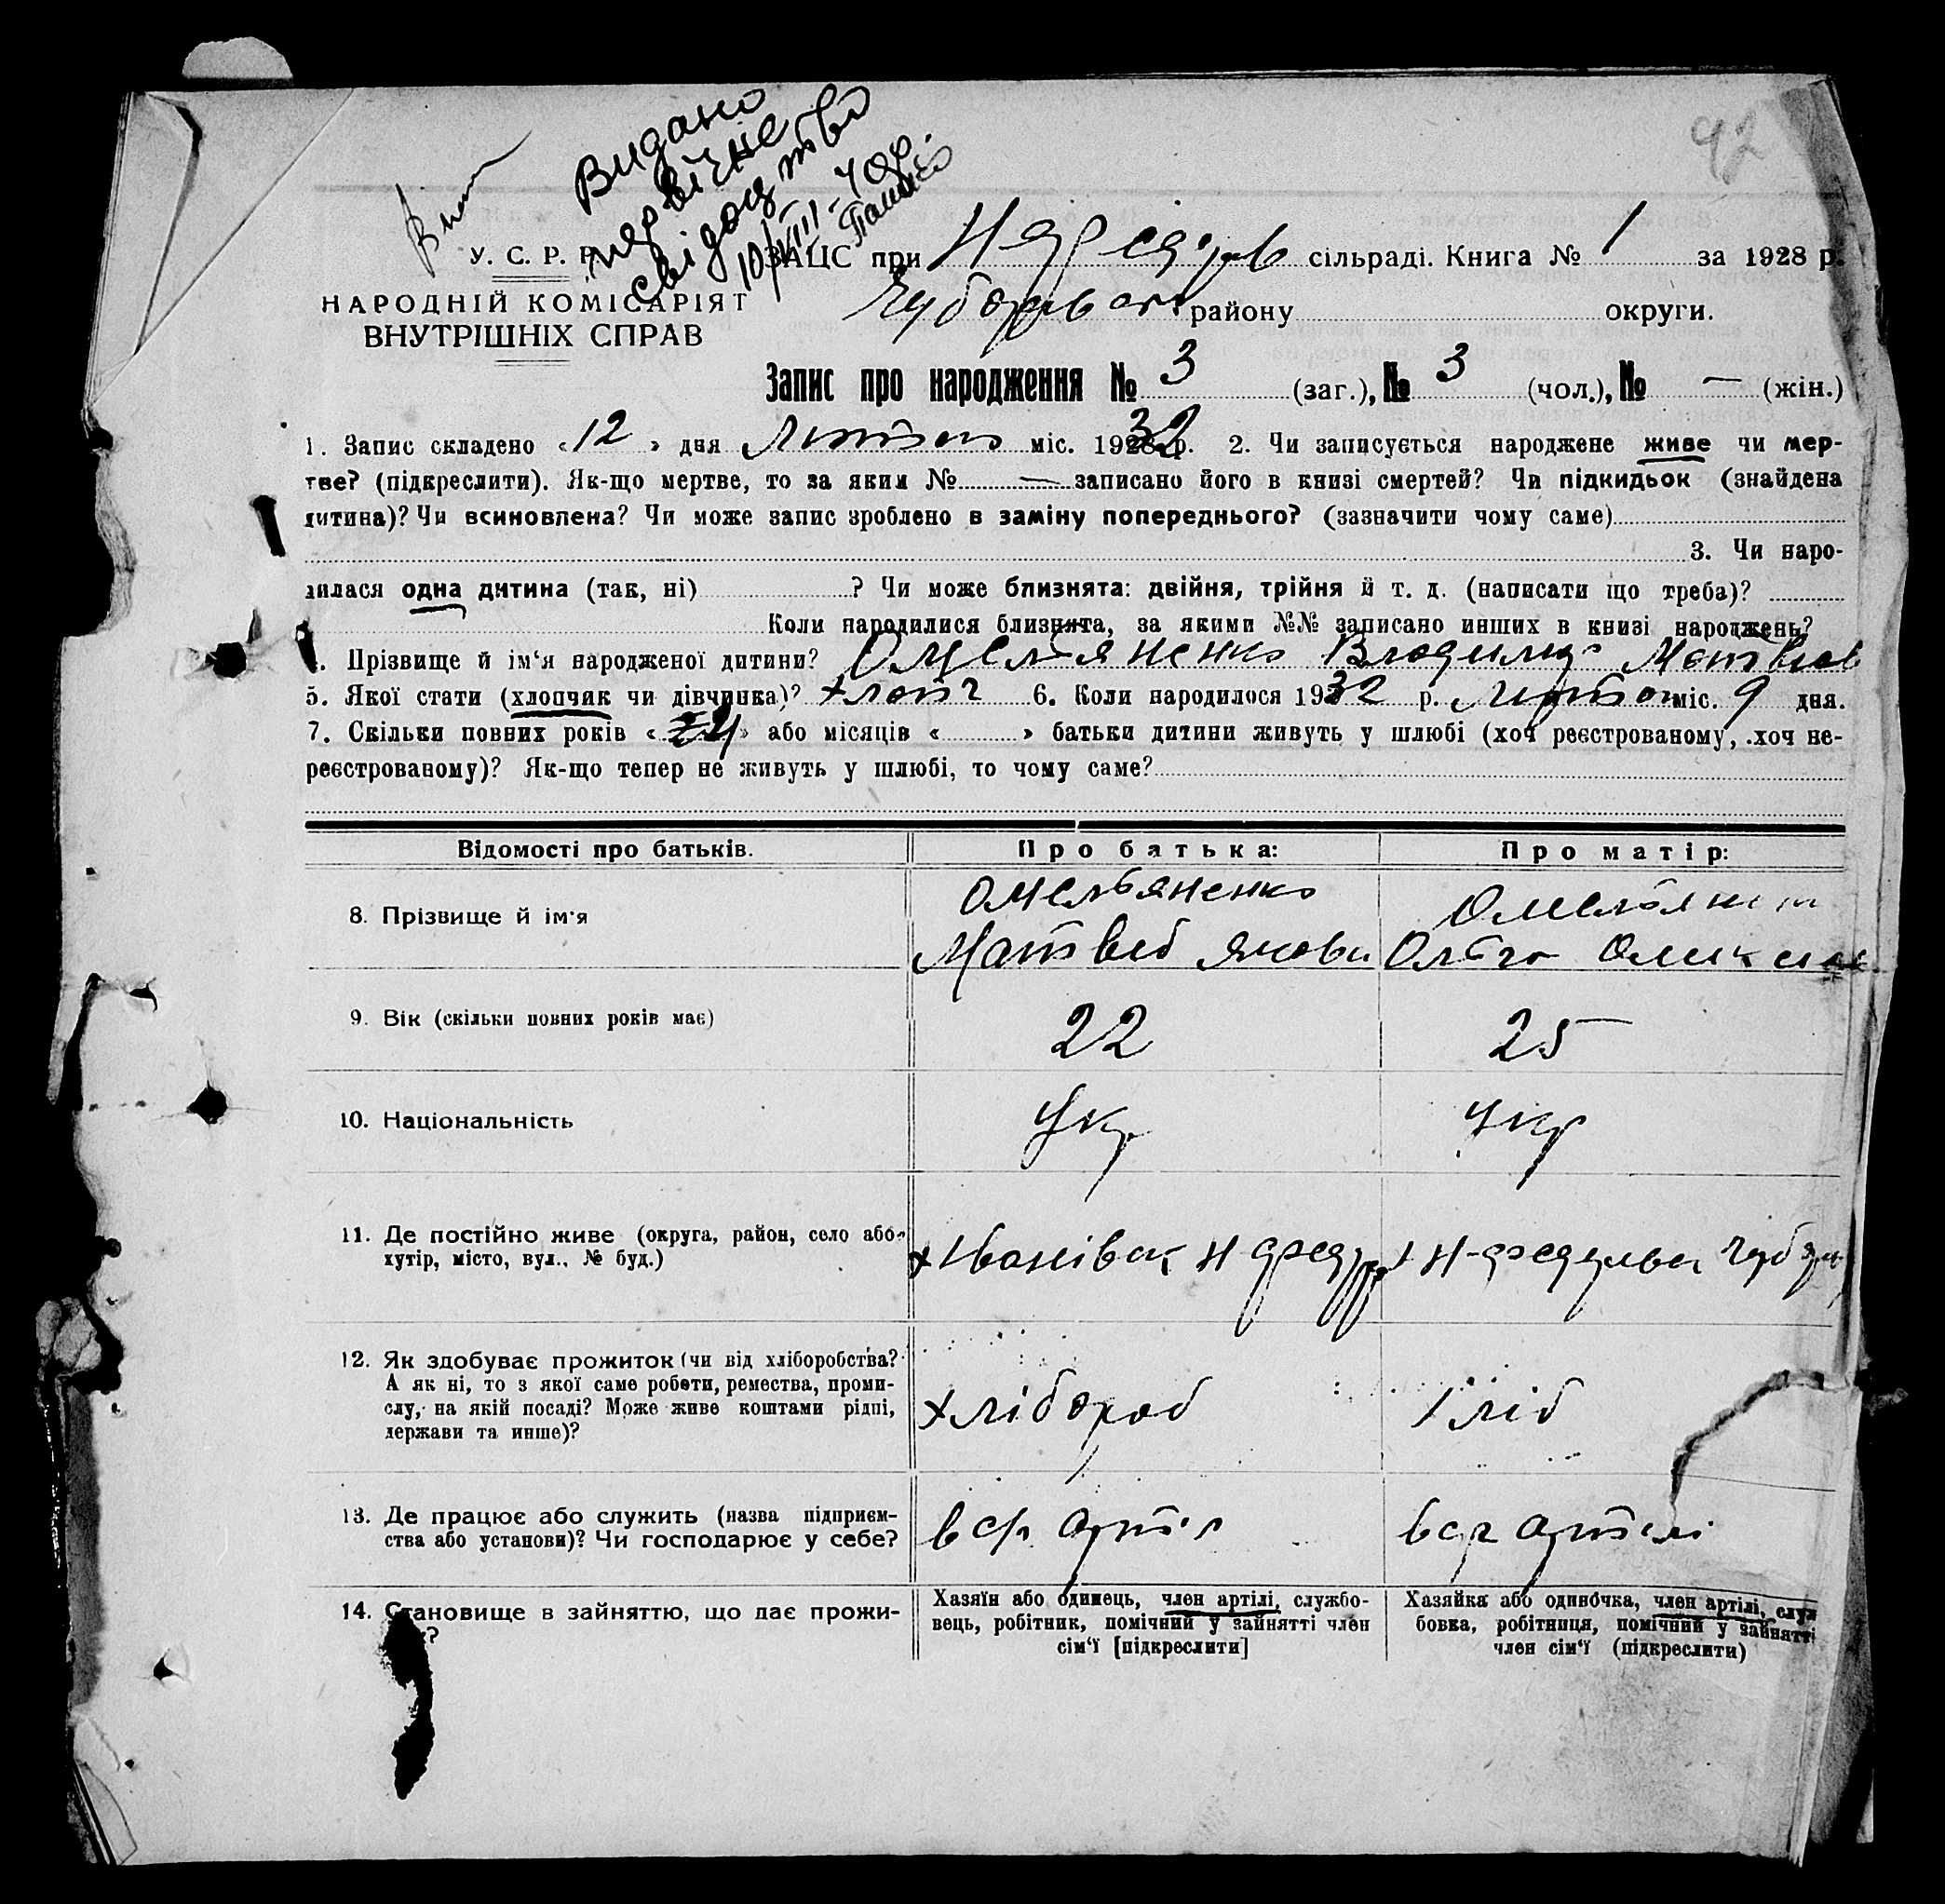 92
Видано
первісне
свідоцтво
10/VIII-40р.
У. С. Р. Р.
НАРОДНІЙ КОМІСАРІЯТ
ВНУТРІШНІХ СПРАВ
ЗАЦС при сільраді. Книга № 1 за 1928 р.
району округи.
Запис про народження № 3 (заг.), № 3 (чол.), № — (жін.)
1. Запис складено «12» дня Лютого міс. 1932 р. 2. Чи записується народжене живе чи мер-
тве? (підкреслити). Як-що мертве, то за яким № — записано його в книзі смертей? Чи підкидьок (знайдена
дитина)? Чи всиновлена? Чи може запис зроблено в заміну попереднього? (зазначити чому саме)
3. Чи наро-
дилася одна дитина (так, ні) ? Чи може близнята: двійня, трійня й т. д. (написати що треба)?
Коли народилися близнята, за якими №№ записано инших в книзі народжень?
4. Прізвище й ім'я народженої дитини? Омельяненко Владимир Матвієв
5. Якої стати (хлопчик чи дівчинка)? хлопч 6. Коли народилося 1932 р. Лютого міс. 9 дня.
7. Скільки повних років « » або місяців « » батьки дитини живуть у шлюбі (хоч реєстрованому, хоч не-
реєстрованому)? Як-що тепер не живуть у шлюбі, то чому саме?
Відомості про батьків. Про батька: Про матір:
8. Прізвище й ім'я
Омельяненко
Матвей Якови
Омельянен
Ольга
9. Вік (скільки повних років має) 22 25
10. Національність Укр Укр
11. Де постійно живе (округа, район, село або
хутір, місто, вул., № буд.)
х Іванівка
12. Як здобуває прожиток (чи від хліборобства?
А як ні, то з якої саме роботи, ремества, проми-
слу, на якій посаді? Може живе коштами рідні,
держави та инше)?
хлібороб хліб
13. Де працює або служить (назва підприєм-
ства або установи)? Чи господарює у себе?
в с/г артіл в с/г артілі
14. Становище в зайняттю, що дає прожи-
Хазяїн або одинець, член артілі, службо-
вець, робітник, помічний у зайнятті член
сім'ї [підкреслити]
Хазяйка або одиночка, член артілі, служ
бовка, робітниця, помічний у зайнятті
член сім'ї (підкреслити)